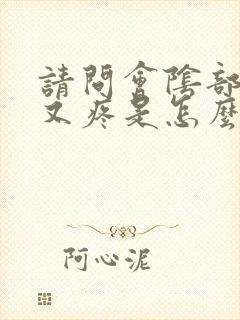 請問會陰部
又疼是怎麼
阿心泥